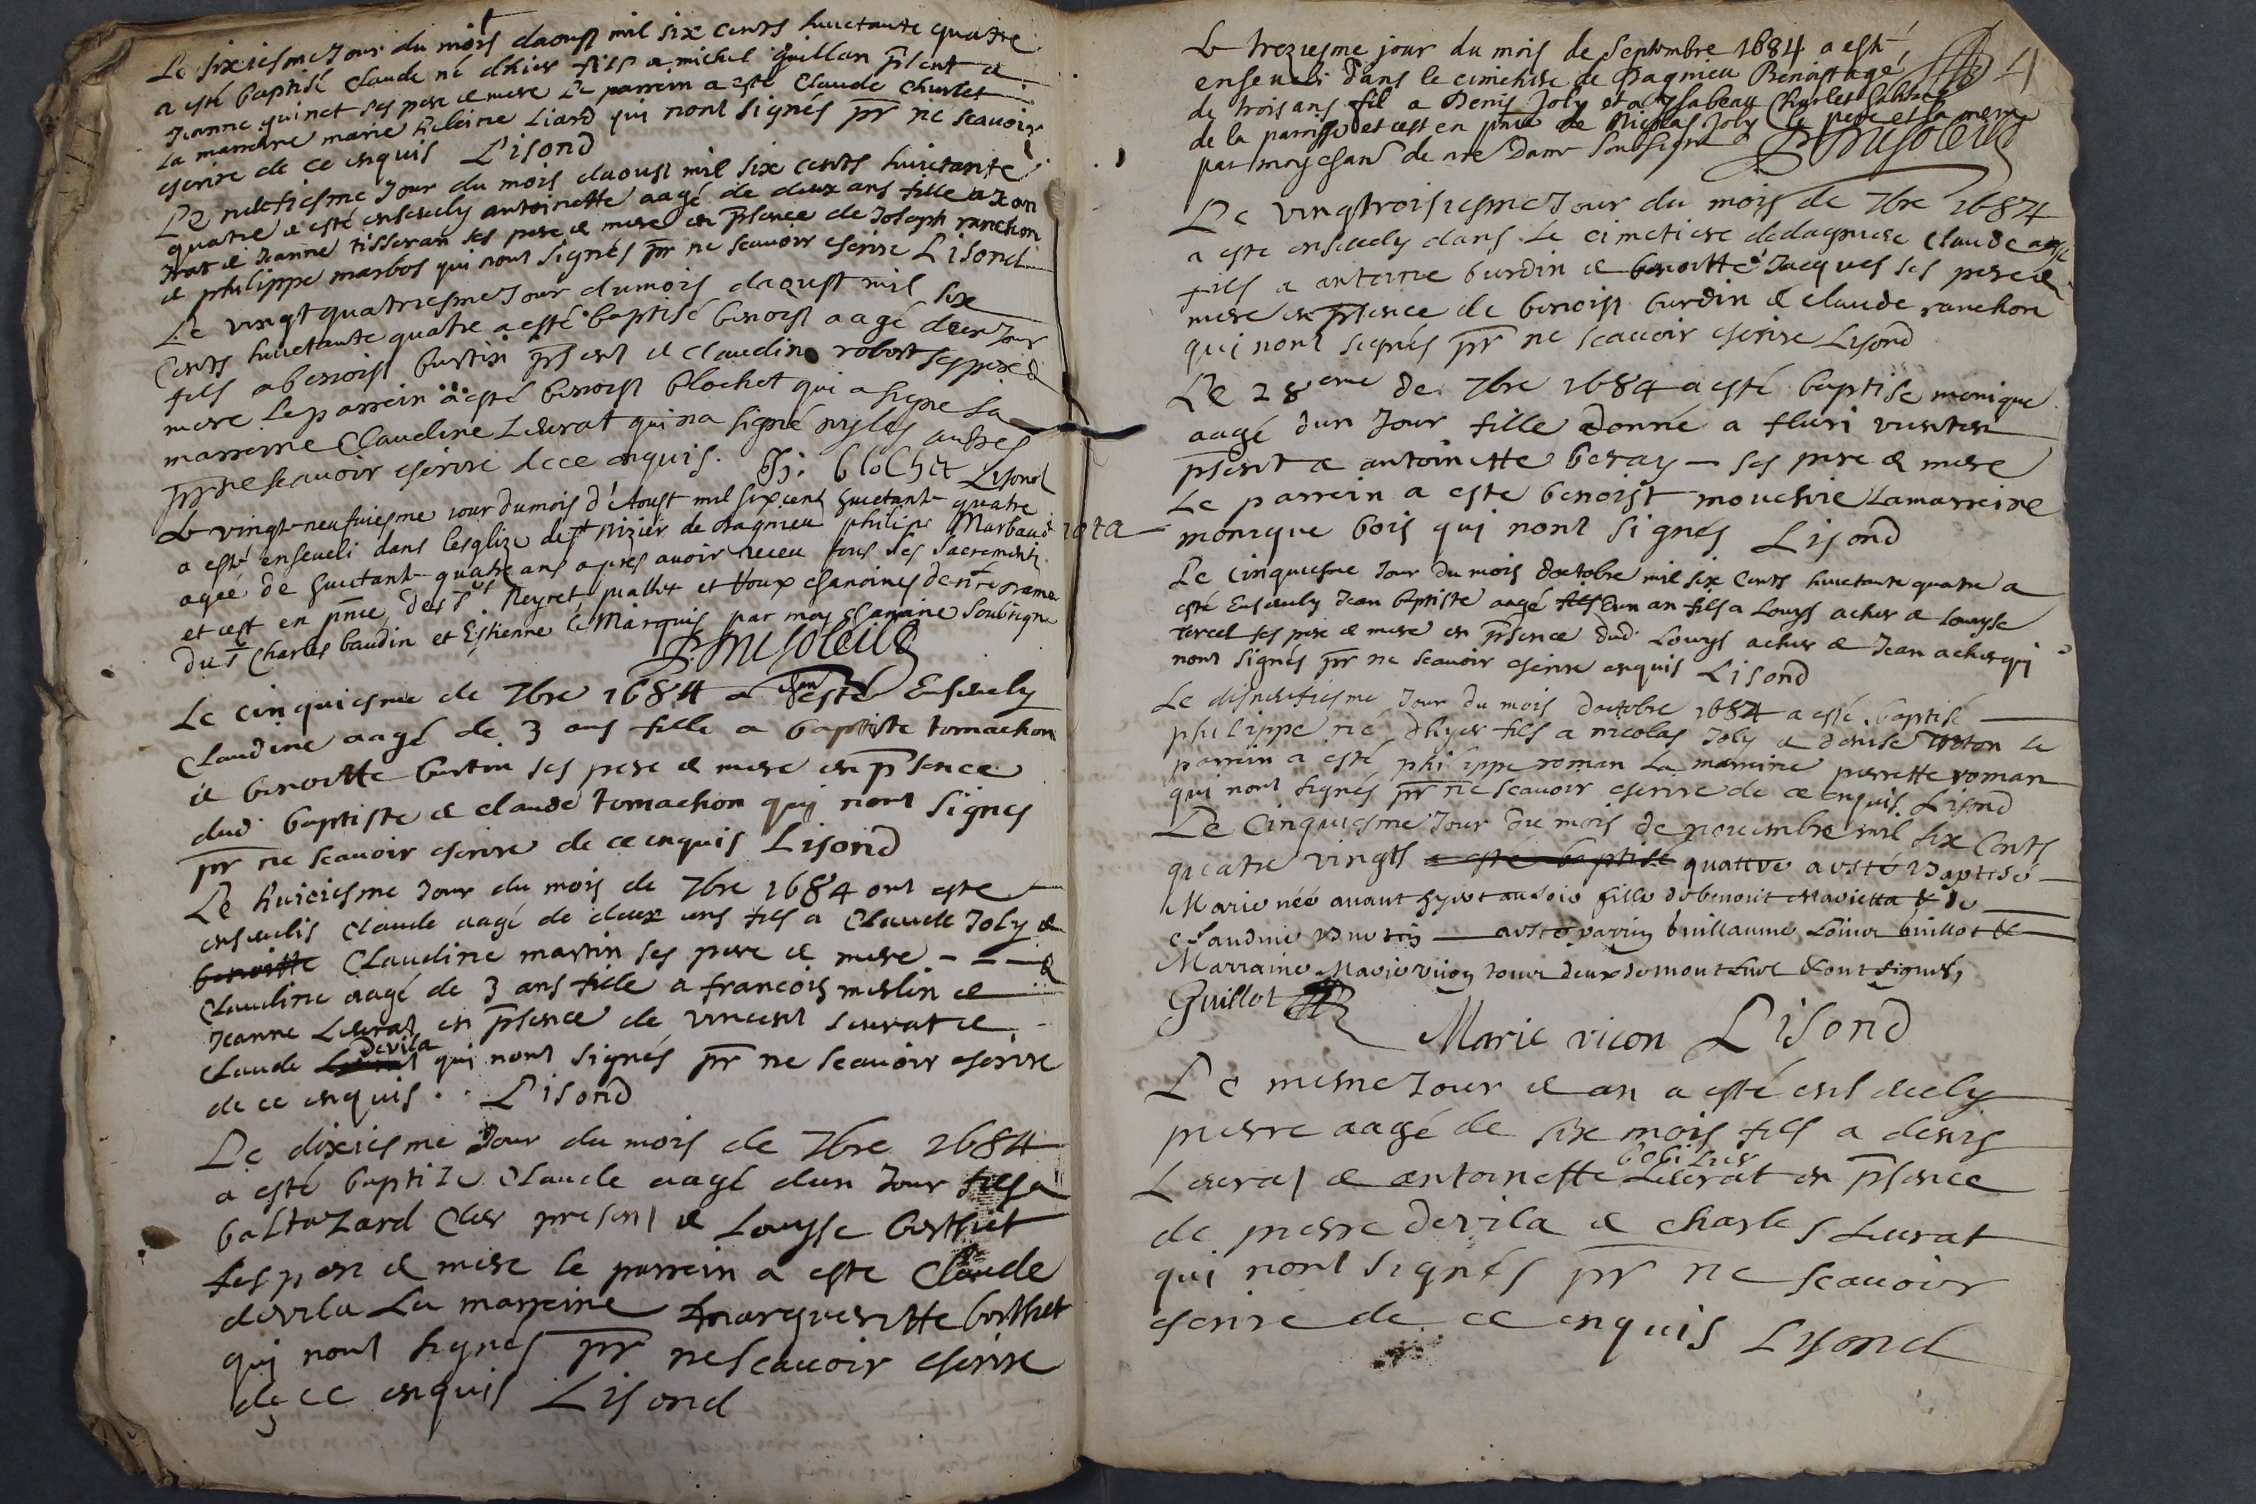 Le sixiesme Jour du mois daoust mil six cents huictante quatre
a esté baptisé Claude né dhier fils a michel guillan pnt et
Jeanne quinet ses pere et mere Le parrein a esté Claude Churlet
La marrene marie heleine Liard qui nont signés pr ne scauoir
escrire de ce enquis Lisond
Le neufiesme Jour du mois daoust mil six cents huictante
quatre a esté enseuely antoinette aagé de deux ans fille a
et Jeanne tisseran ses pere et mere en psence de Joseph ranchon
et philippe marbos qui nont signés pr ne scauoir escrire Lisond
Le vingtquatriesme Jour dumois daoust mil six
Cents huictante quatre a esté baptisé benoist aagé dun Jour
fils a benoist burtin psent et Claudine robert ses pere et
mere Le parrein a esté benoist blochet qui a signe La
marrerne Claudine Leurat qui na signé ny les autres
pr ne scauoir escrire de ce enquis. Bt: blochet Lisond
Le vingt-neufuiesme iour du mois d'Aoust mil six cent huictant quatre
a esté enseueli dans lesglize de St Nizier de dagnieu philipe Marbaud
agée de huictant quatre ans apres auoir receu tous ses sacrements
et cest en pnce des Srs Neyret piallet et Houx chanoines de nre dame
du Sr Charles baudin et Estienne le Marquis par moy chanoine soubsigné
Le cinquiesme de 7bre 1684 a esté Enseuely
Claudine aagé de 3 ans fille a baptiste tomachon
et benoitte burtin ses pere et mere en psence
dud. baptiste et claude tomachon qui nont signes
pr ne scauoir escrire de ce enquis Lisond
Le huiciesme Jour du mois de 7bre 1684 ont este
enseuelis Claude aagé de deux ans fils a Claude Joly et
benoitte Claudine martin ses pere et mere - - - &
Claudine aagé de 3 ans fille a francois merlin et
Jeanne Leurat en psence de vincent Leurat et
Claude devila qui nont signés pr ne scauoir escrire
de ce enquis. Lisond
Le dixiesme Jour du mois de 7bre 1684
a esté baptizé Claude aagé dun Jour fils a
baltazard Cler present et Louyse berthet
ses pere et mere le parrein a este Claude
devila La marreine margueritte berthet
qui nont signes pr ne scauoir escrire
de ce enquis Lisond
4
Le treziesme jour du mois de Septembre 1684 a esté
enseueli dans le cimetiere de Dagnieu Benoist agé
de trois ans fil a Denis Joly et a Ysabeau Charlet habitants
de la parroisse et cest en pnce de Nicolas Joly le pere et la mere
par moy chane de nre Dame soubsigné
Le vingtroisiesme Jour du mois de 7bre 1684
a este enseuely dans Le cimetiere dedagnieu Claude aagé
fils a antoine burdin et benoitte Jacques ses pere et
mere en psence de benoist burdin et claude ranchon
qui nont signés pr ne scauoir escrire Lisond
Le 28eme de 7bre 1684 a esté baptise monique
aagé dun Jour fille donné a fleuri
psent et antoinette beray ses pere et mere
Le parrein a este benoist La marreine
monique bois qui nont signés Lisond
Le cinquiesme Jour du mois doctobre mil six cents huictante quatre a
esté Enseuely Jean baptiste aagé fils dun an fils a Louys acher et Louyse
tercel ses pere et mere en psence dud. Louys acher et Jean acher qui
nont signés pr ne scauoir escrire enquis Lisond
Le disneufiesme Jour du mois doctobre 1684 a esté baptisé
philippe né dhyer fils a nicolas Joly et denise le
parrein a esté philippe roman La marreine pierrette roman
qui nont signés pr ne scauoir escrire de ce enquis Lisond
Le Cinquiesme Jour du mois de nouembre mil six Cents
quatre vingts a este baptisé quattre a esté Baptisé
Marie néé auant hyer au soir fille de benoit Marietta & de
Claudine a esté parrin Guillaume Guillot &
Marraine Marie vicon tous deux de montluel & ont signés
Guillot
Marie vicon Lisond
Le mesme Jour et an a esté enseuely
pierre aagé de six mois fils a denis
Leurat et antoinette Leurat en psence
de pierre devila et charles Leurat
qui nont signés pr ne scauoir
escrire de ce enquis Lisond